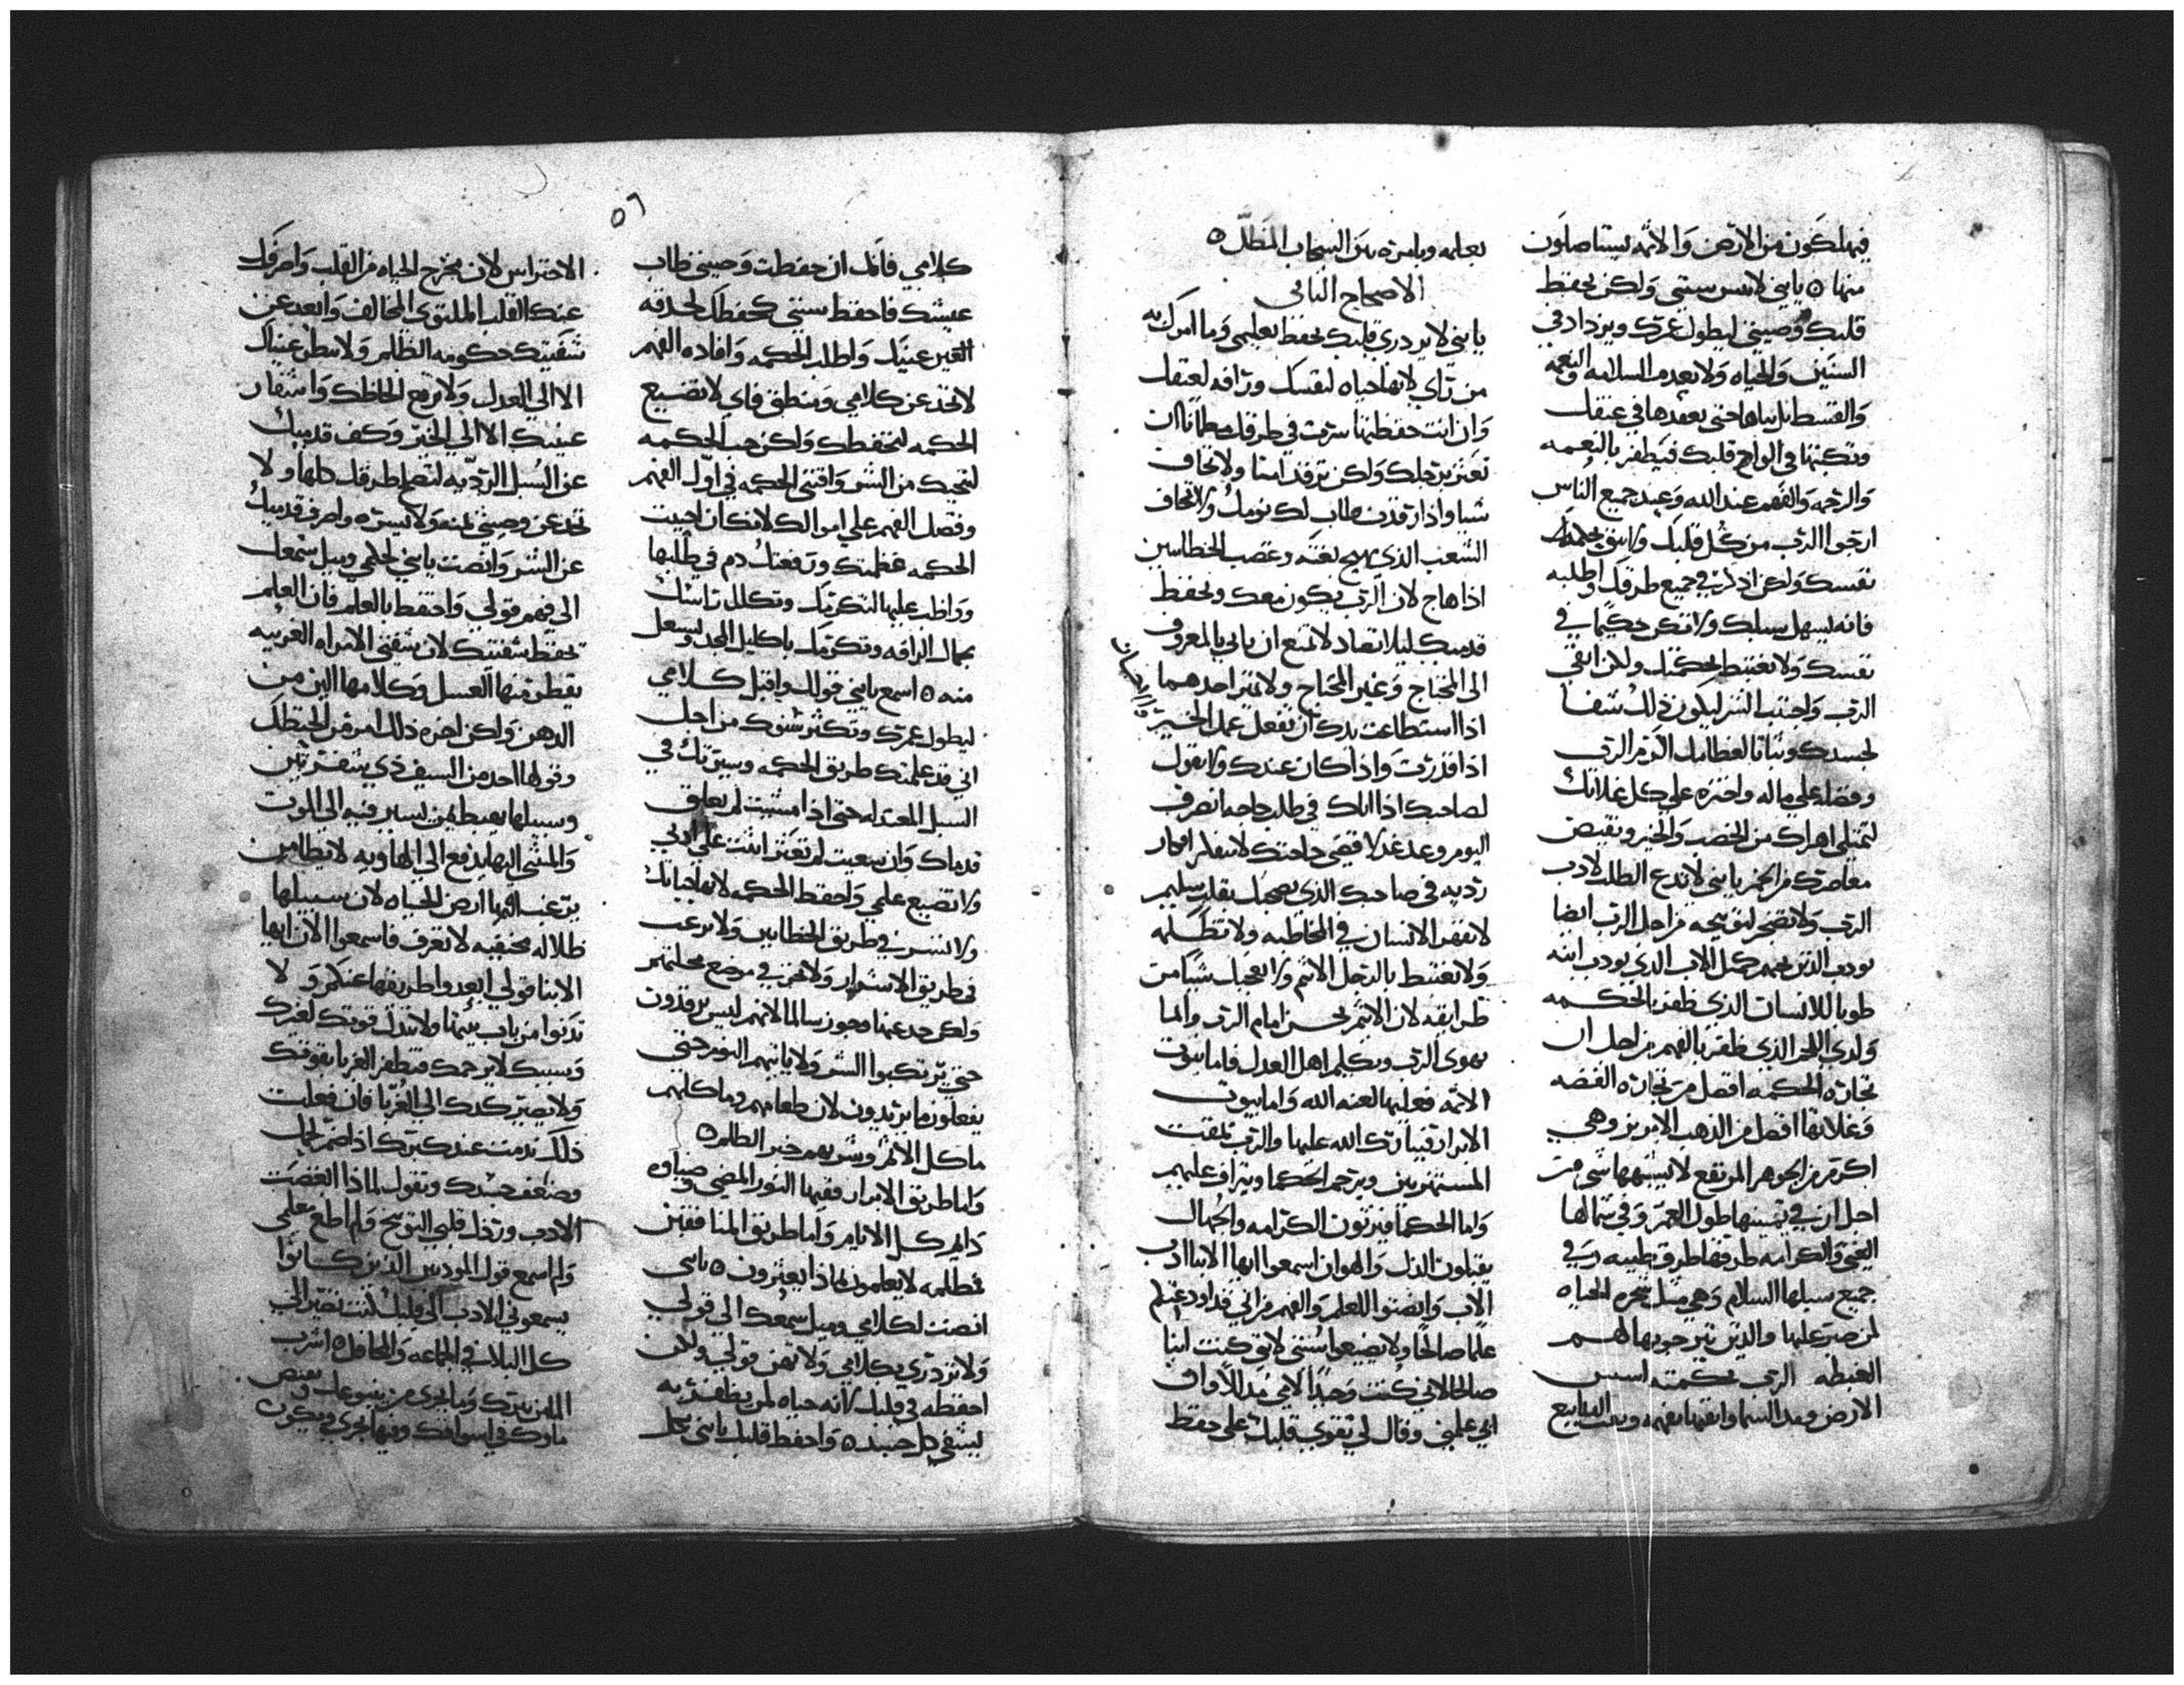 فيهلكون من الارض والاثمه يستاصلون
منها ه يابني لا تنس سنتي ولكن يحفظ
قلبك وصيتي ليطول عمرك ويزداد في
السنين والحياه ولا تعدم السلامه والنعمه
والقسط بل تعقدها في عنقك
وتكتبها في الواح قلبك فتظفر بالنعمه
والرحمه والفهم عند الله وعند جميع الناس
ارجوا الرب من كل قلبك ولا تثق بحكمه
نفسك ولكن اذكره في جميع طرقك واطلبه
فانه يسهل سبلك ولا تكن حكيما في
نفسك ولا تغتبط بحكمتك ولكن اتقي
الرب واجتنب الشر ليكون ذلك شفا
لجسدك وثباتا لعظامك اكرم الرب
وفضله علي ماله واختره علي كل غلاتك
لتمتلي اهراك من الخصب والخير وتفيض
معاصرك من الخمر يابني لا تدع الطلب لادب
الرب ولا تضجر لتوبيخه من اجل الرب ايضا
يودب الذين يحبهم كمثل الاب الذي يودب ابنه
طوبا للانسان الذي ظفر بالحكمه
ولدي الذي ظفر بالفهم من اجل ان
تجاره الحكمه افضل من تجاره الفضه
وغلاتها افضل من الذهب الابريز وهي
اكرم من الجوهر المرتفع لا يشبهها شي من
اجل ان في يمينها طول العمر وفي شمالها
الغني والكرامه طرقها طرق طيبه وفي
جميع سبلها السلام وهي مثل شجره الحياه
لمن صبر عليها والذين يرجوبها لهم
الغبطه الرب بحكمته اسس
الارض ومد السما واتقنها بفهمه وينابيع
بعلمه وبامره ينزل السحاب المطر ه
الاصحاح الثاني
يابني لا يزدري قلبك بحفظ تعليمي وما امرك به
من راي لانها حياه لنفسك ورافه لعنقك
وان انت حفظتها سرت في طرقك مطمانا ان
تعثر برجلك ولكن ترقد امنا ولا تخاف
شيا واذا رقدت طاب لك نومك ولا تخاف
الشعب الذي يهيج بغته وغضب الخطاين
اذا هاج لان الرب يكون معك ويحفظ
قدميك ليلا تصاد لا تمنع ان ياتي بالمعروف
الي المحتاج وغير المحتاج ولا تميز احدهما
اذا استطاعت يدك ان تفعل عمل الخير
اذا قدرت واذا كان عندك ولا تقول
لصاحبك اذا اتاك في طلب حاجه انصرف
اليوم وعد غدا اقضي حاجتك لا تفكر افكار
رديه في صاحبك الذي يصحبك بقلب سليم
لا تقهر الانسان في المخاطبه ولا تظلمه
ولا تغتبط بالرجل الاثم ولا يعجبك شيا من
طرايقه لان الاثم نجس امام الرب وانما
يهوي الرب ويكلم اهل العدل فاما بيوت
الاثمه فعليها لعنه الله واما بيوت
الابرار فتبارك الله عليها والرب يمقت
المستهزين ويرحم الحكما ويتراف عليهم
واما الحكما فيرثون الكرامه والجهال
يقبلون الذل والهوان اسمعوا ايها الابنا ادب
الاب وانصتوا للعلم والفهم فاني قد اردعتكم
علما صالحا ولا تضيعوا سنتي لاني كنت ابنا
صالحا لاني كنت وحيدا لامي
ابي علمني وقال لي يقوي قلبك علي حفظ
٥٦
كلامي فانك ان حفظت وصيتي طاب
عيشك فاحفظ سنتي كحفظك لحدقه
العين عينيك واطلب الحكمه وافاده الفهم
لا تحد عن كلامي ومنطق فاي لا تضيع
الحكمه لتحفظك ولكن حب الحكمه
لتنجيك من الشر واقتني الحكمه في اول الفهم
وفضل الفهم علي اموالك لامكان احببت
الحكمه عظمتك ورفعتك دم في طلبها
وواظب عليها لتكرمك وتكلل راسك
بجمال الرافه وتكرمك باكليل المجد وتسعل
منه ه اسمع يابني قولي واقبل كلامي
ليطول عمرك وتكثر سنوك من اجل
اني قد علمتك طريق الحكمه وسيرتك في
السبل المعتدله حتي اذا مشيت لم تعلق
قدماك وان سعيت لم تعثر اثبت علي ادبي
ولا تضيع علمي واحفظ الحكمه لانها حياتك
ولا تسر في طريق الخطايين ولا ترغب
في طريق الاشرار ولا تجز في موضع محلتهم
ولكن حد عنها وجوز سالما لانهم ليس يرقدون
حتي يرتكبوا الشر ولا ياتيهم النوم حتي
يفعلون ما يريدون لان طعامهم وماكلهم
ماكل الاثم وشربهم خمر الظلم ه
واما طريق الابرار ففيها النور المضي وضياوه
دايم كل الايام واما طريق المنافقين
فظلمه لا يعلمون لماذا يعثرون ه يابني
انصت لكلامي وميل سمعك الي قولي
ولا تزدري بكلامي ولا تهن قولي ولكن
احفظه في قلبك لانه حياه لمن يظفر به
ويشفي كل جسده ه واحفظ قلبك يابني بكل
الاحتراس لان مخرج الحياه من القلب واصرف
عنك القلب الملتوي المخالف وابعد عن
شفتيك حكومه الظالم ولا تنظر عيناك
الا الي العدل ولا ترفع الحاظك واشفار
عينيك الا الي الخير وكف قدميك
عن السبل الرديه لتصلح طرقك كلها ولا
تحد عن وصيتي يمنه ولا يسره واصرف قدميك
عن الشر وانصت يابني لحكمي وميل سمعك
الي فهم قولي واحتفظ بالعلم فان العلم
تحفظ شفتيك لان شفتي الامراه الغريبه
يقطر منها العسل وكلامها الين من
الدهن ولكن اخره ذلك امر من الحنظل
وقولها احد من السيف ذي شفرتين
وسبيلها يهبط من يسير فيه الي الموت
والمشي اليها يدفع الي الهاويه لا يطا من
يرغب اليها ارض الحياه لان سبيلها
ظلاله مخفيه لا تعرف فاسمعوا الان ايها
الابنا قولي ابعدوا طريقها عنكم ولا
تدنوا من باب بيتها ولا تبدل قوتك لغيرك
وسبيك لا يرحمك فتظفر الغربا بقوتك
ولا يصير كدك الي الغربا فان فعلت
ذلك ندمت عند كبرك اذا ضمر لحمك
وضعف جسدك وتقول لماذا ابغضت
الادب ورذل قلبي التوبيخ ولم اطع معلمي
ولم اسمع قول المودبين الذين كانوا
يسمعوني الادب
كل البلايا في الجماعه والمحافل ه اشرب
الما من بيرك وما يجري من ينبوعك وتفيض
ماوك في اسواقك وفيها يجري ويكون